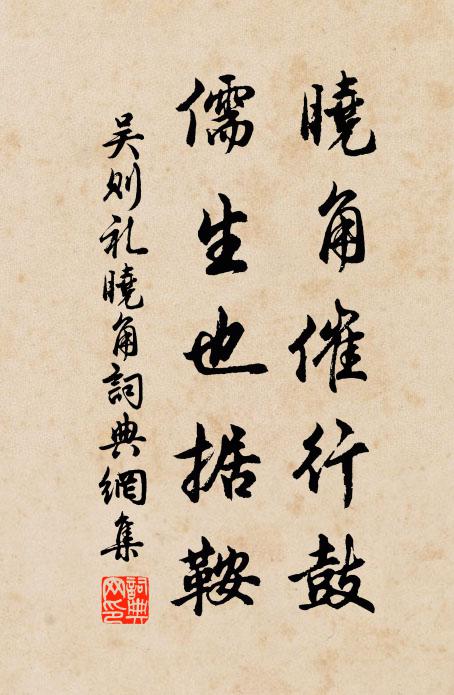 曉角催行鼓
儒生也据鞍
吴则礼曉角詞典網集
詞典網印